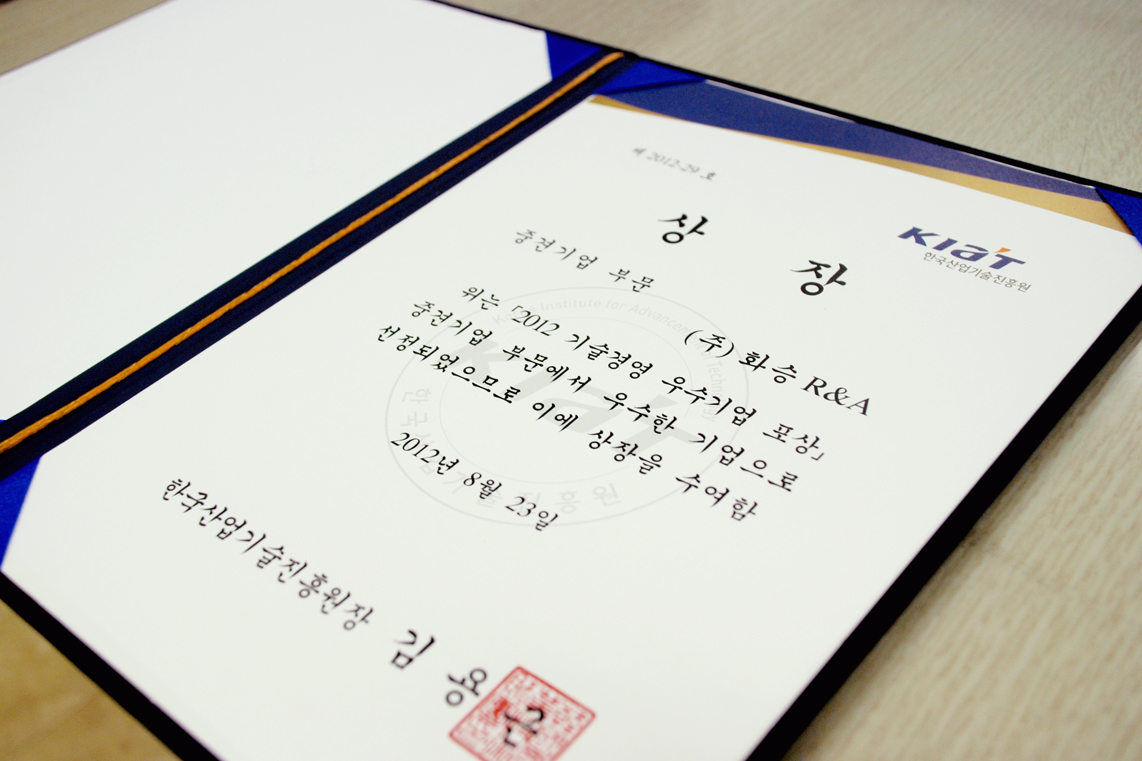 제 2012-29 호
상 장
KIAT
한국산업기술진흥원
중견기업 부문
(주) 화승 R&A
위는 「2012 기술경영 우수기업 포상」
중견기업 부문에서 우수한 기업으로
선정되었으므로 이에 상장을 수여함
2012년 8월 23일
한국산업기술진흥원장 김 용 근
Korea Institute for Advancement of Technology
KIAT
한국산업기술진흥원